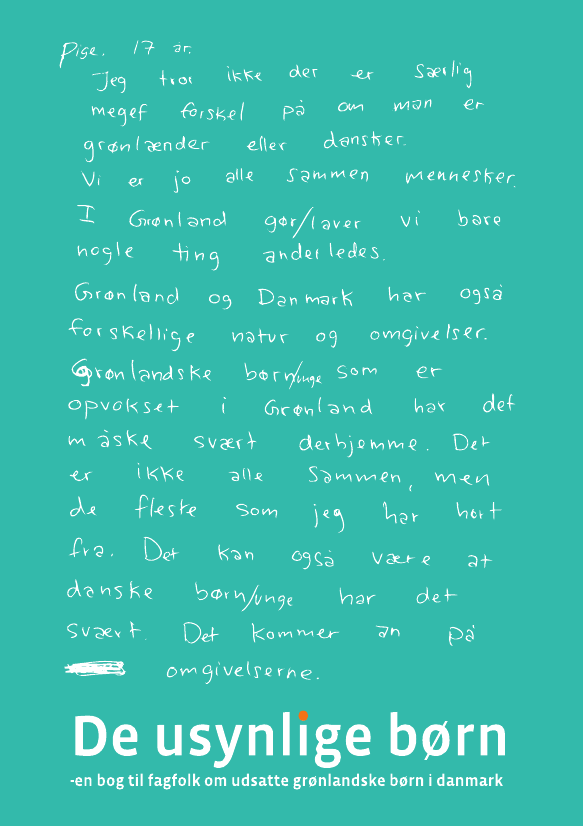 Pige. 17 år.
Jeg tror ikke der er særlig
meget forskel på om man er
grønlænder eller dansker.
Vi er jo alle sammen mennesker.
I Grønland gør/laver vi bare
nogle ting anderledes.
Grønland og Danmark har også
forskellige natur og omgivelser.
Grønlandske børn/unge som er
opvokset i Grønland har det
måske svært derhjemme. Det
er ikke alle sammen, men
de fleste som jeg har hørt
fra. Det kan også være at
danske børn/unge har det
svært. Det kommer an på
omgivelserne.
De usynlige børn
-en bog til fagfolk om udsatte grønlandske børn i danmark